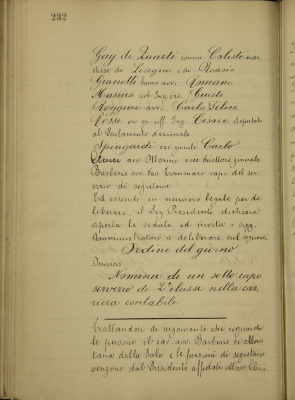 232
Guy de Quarti comm Calisto mar
chese di Loseyno e di Rosasio
Gianetti comm avv. Romano
Masera cav. Ing. Giusto
Roggieri avv. Carlo Felice
Rossi cav. uff. Ing. Cesare, deputato
al Parlamento Nazionale
Spingardi rag. Carlo
avv. Alberto vice direttore generale
Barberis avv. cav. Tommaso capo del ser
vizio di segreteria
Ed essendo in numero legale per de
liberare, il Sig. Presidente dichiara
aperta la seduta ed invita i sigg.
Amministratori a deliberare sul seguente
Ordine del giorno
Omissis
Nomina di un sotto capo
servizio di 2ª classe nella car
riera contabile
Trattandosi di argomento che riguarda
le persone il cav. avv. Barberis si allon
tana dalla Sala e le funzioni di segretario
vengono dal Presidente affidate all'avv.